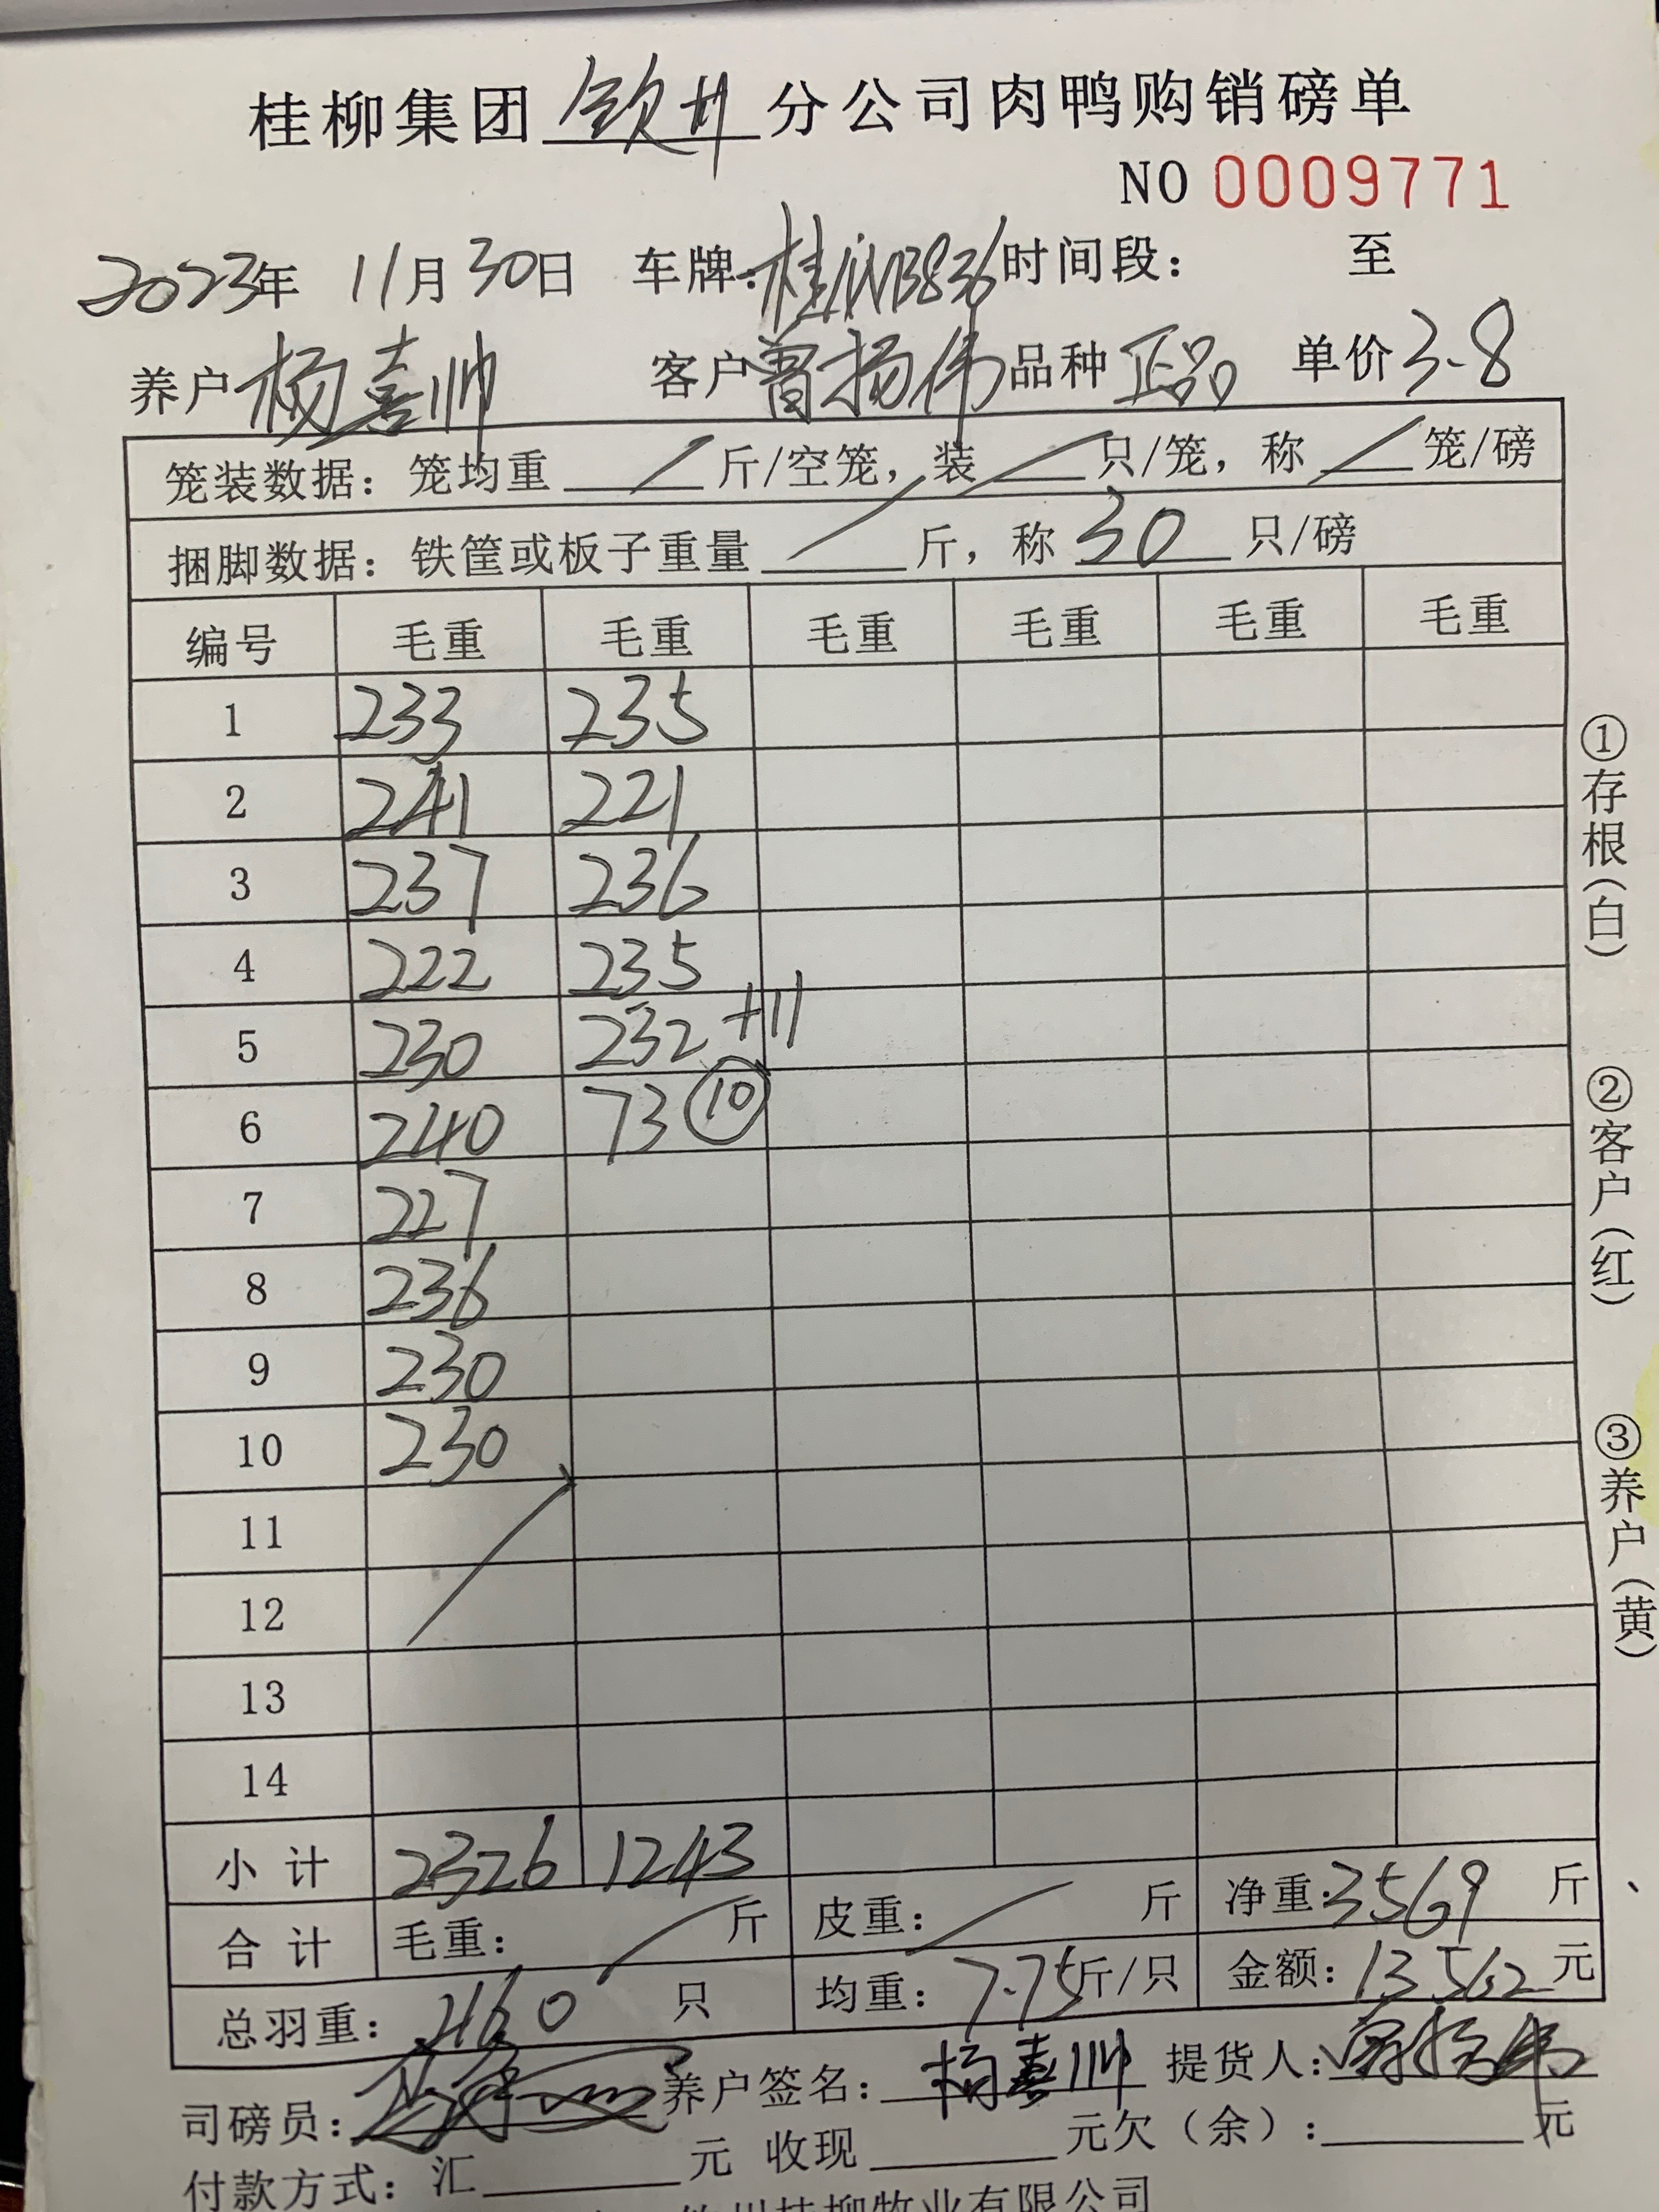 桂柳集团 钦州 分公司肉鸭购销磅单
NO 0009771
2023年 11月30日 车牌: 时间段: 至
养户 杨喜帅 客户 曾扬伟 品种 正品 单价 3.8
笼装数据: 笼均重 / 斤/空笼, 装 / 只/笼, 称 / 笼/磅
捆脚数据: 铁筐或板子重量 / 斤, 称 30 只/磅
编号 毛重 毛重 毛重 毛重 毛重 毛重
1 233 235
2 241 221
3 237 236
4 222 235
5 230 232 +11
6 240 73 ⑩
7 227
8 236
9 230
10 230
11
12
13
14
小计 2326 1243
合计 毛重: / 斤 皮重: / 斤 净重: 3569 斤
总羽重: 460 只 均重: 7.75 斤/只 金额: 13562 元
司磅员: 养户签名: 杨喜帅 提货人: 曾扬伟
付款方式: 汇 元 收现 元欠(余): 元
钦州桂柳牧业有限公司
①存根(白)
②客户(红)
③养户(黄)